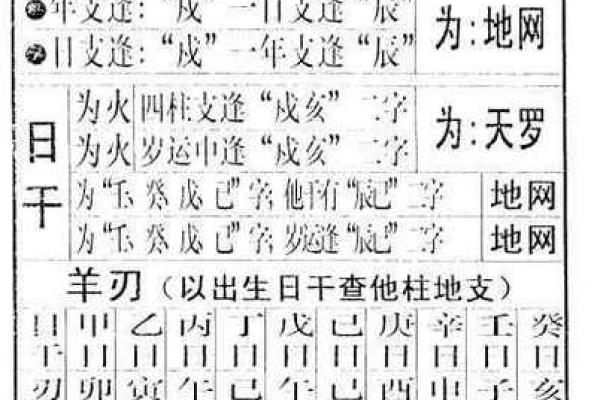 年支逢：“戍” 一日支逢 “辰”
日支逢：“戍” 一年支逢 “辰”
为：地网
日干
为火 四柱支逢 “戍亥” 二字
为火 岁运中逢 “戍亥” 二字
为：天罗
为“壬、癸、戊、己”字，他干有“辰巳”二字 地网
为“壬、癸、戊、己”字，岁运逢“辰巳”二字 地网
羊刃（以出生日干查他柱地支）
日 甲 乙 丙 丁 戊 己 庚 辛 壬 癸
干 日 日 日 日 日 日 日 日 日 日
刃 卯 寅 午 巳 午 巳 酉 申 子 亥